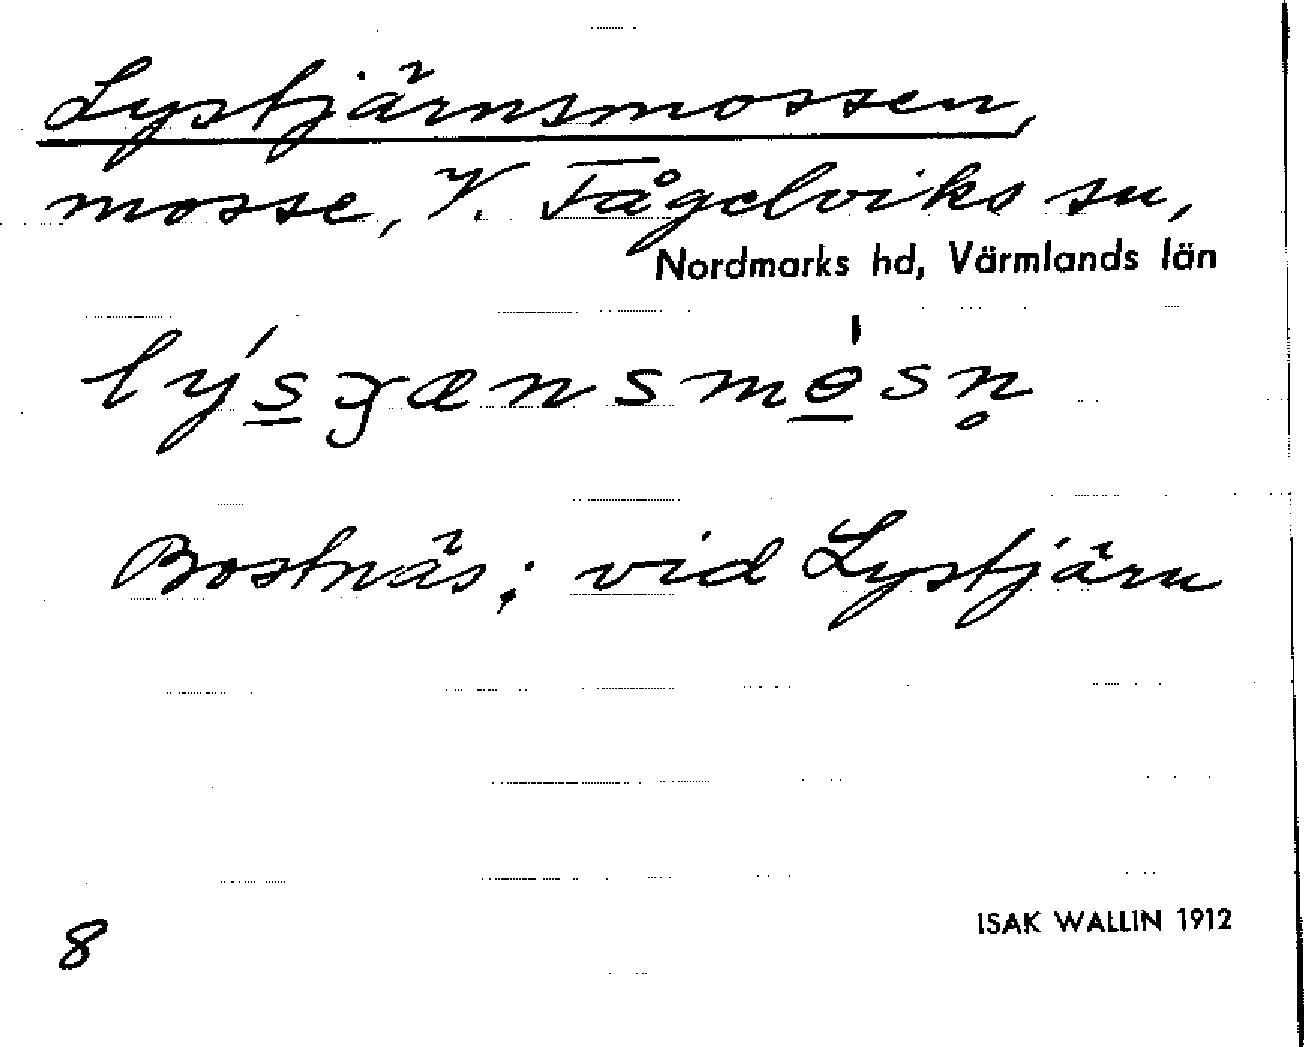 Lystjärnsmossen,
mosse, V. Fågelviks sn,
Nordmarks hd, Värmlands län
Bostnäs; vid Lystjärn
8
ISAK WALLIN 1912